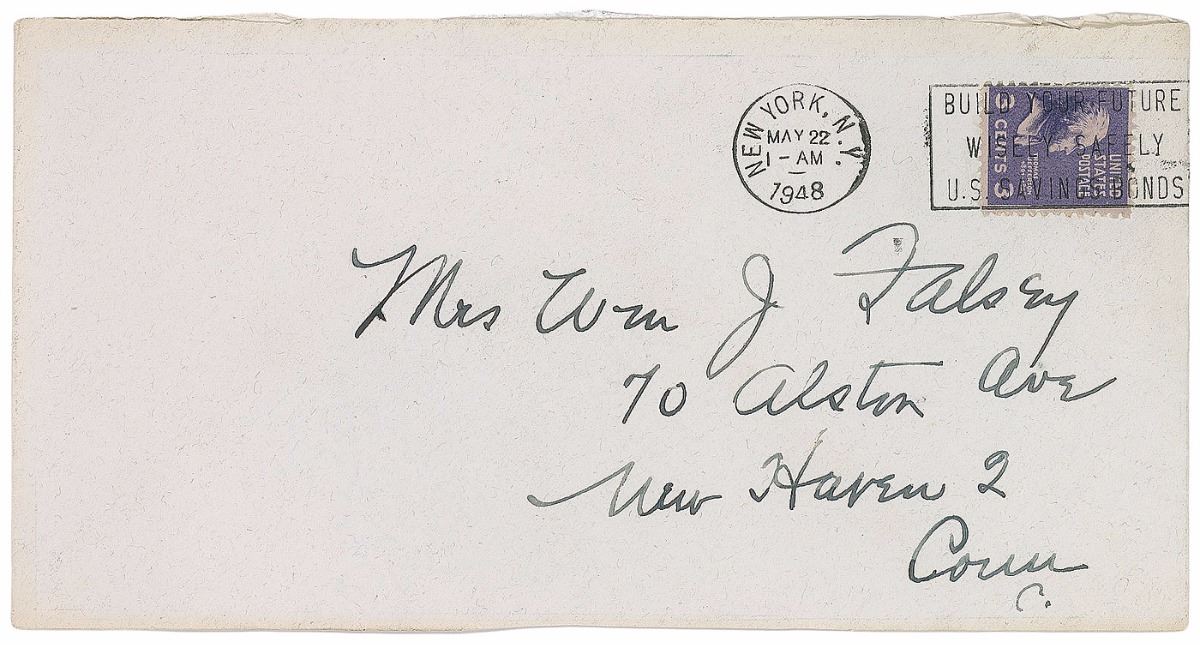 NEW YORK, N.Y.
MAY 22
1 - AM
1948
BUILD YOUR FUTURE
WISELY SAFELY
U.S. SAVINGS BONDS
3 CENTS 3
THOMAS JEFFERSON
UNITED
STATES
POSTAGE
Mrs Wm J Falsey
70 Alston Ave
New Haven 2
Conn